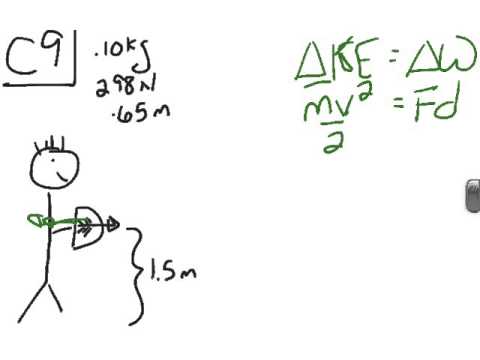 C9
.10kg
298N
.65m
ΔKE = ΔW
mv²/2 = Fd
1.5m